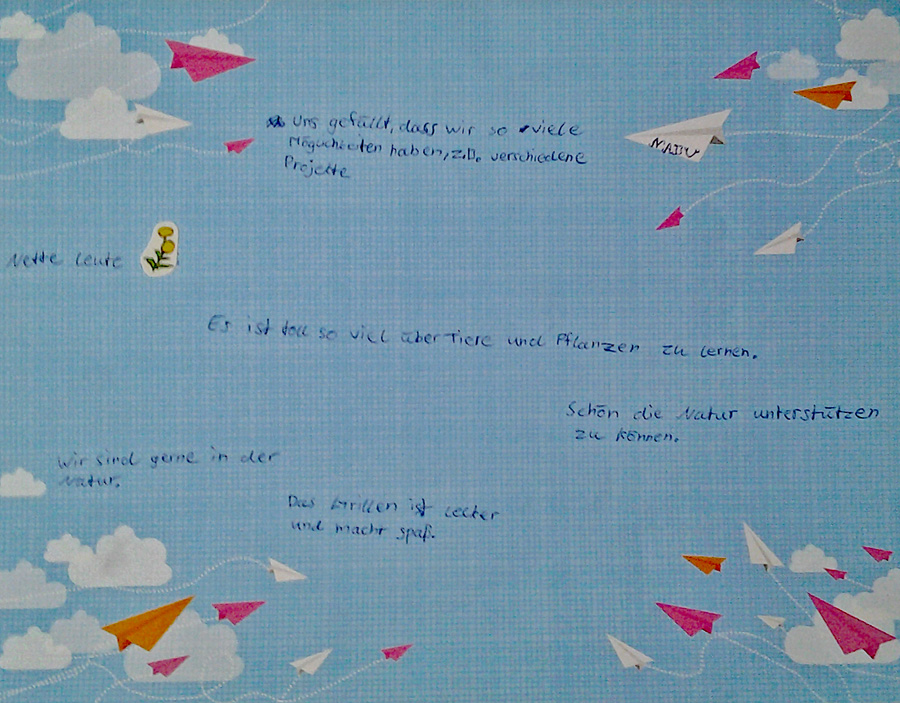 Uns gefällt, dass wir so viele
Möglichkeiten haben, z.B. verschiedene
Projekte
NABU
Nette Leute
Es ist toll so viel über Tiere und Pflanzen zu lernen.
Schön die Natur unterstützen
zu können.
Wir sind gerne in der
Natur.
Das Grillen ist lecker
und macht spaß.